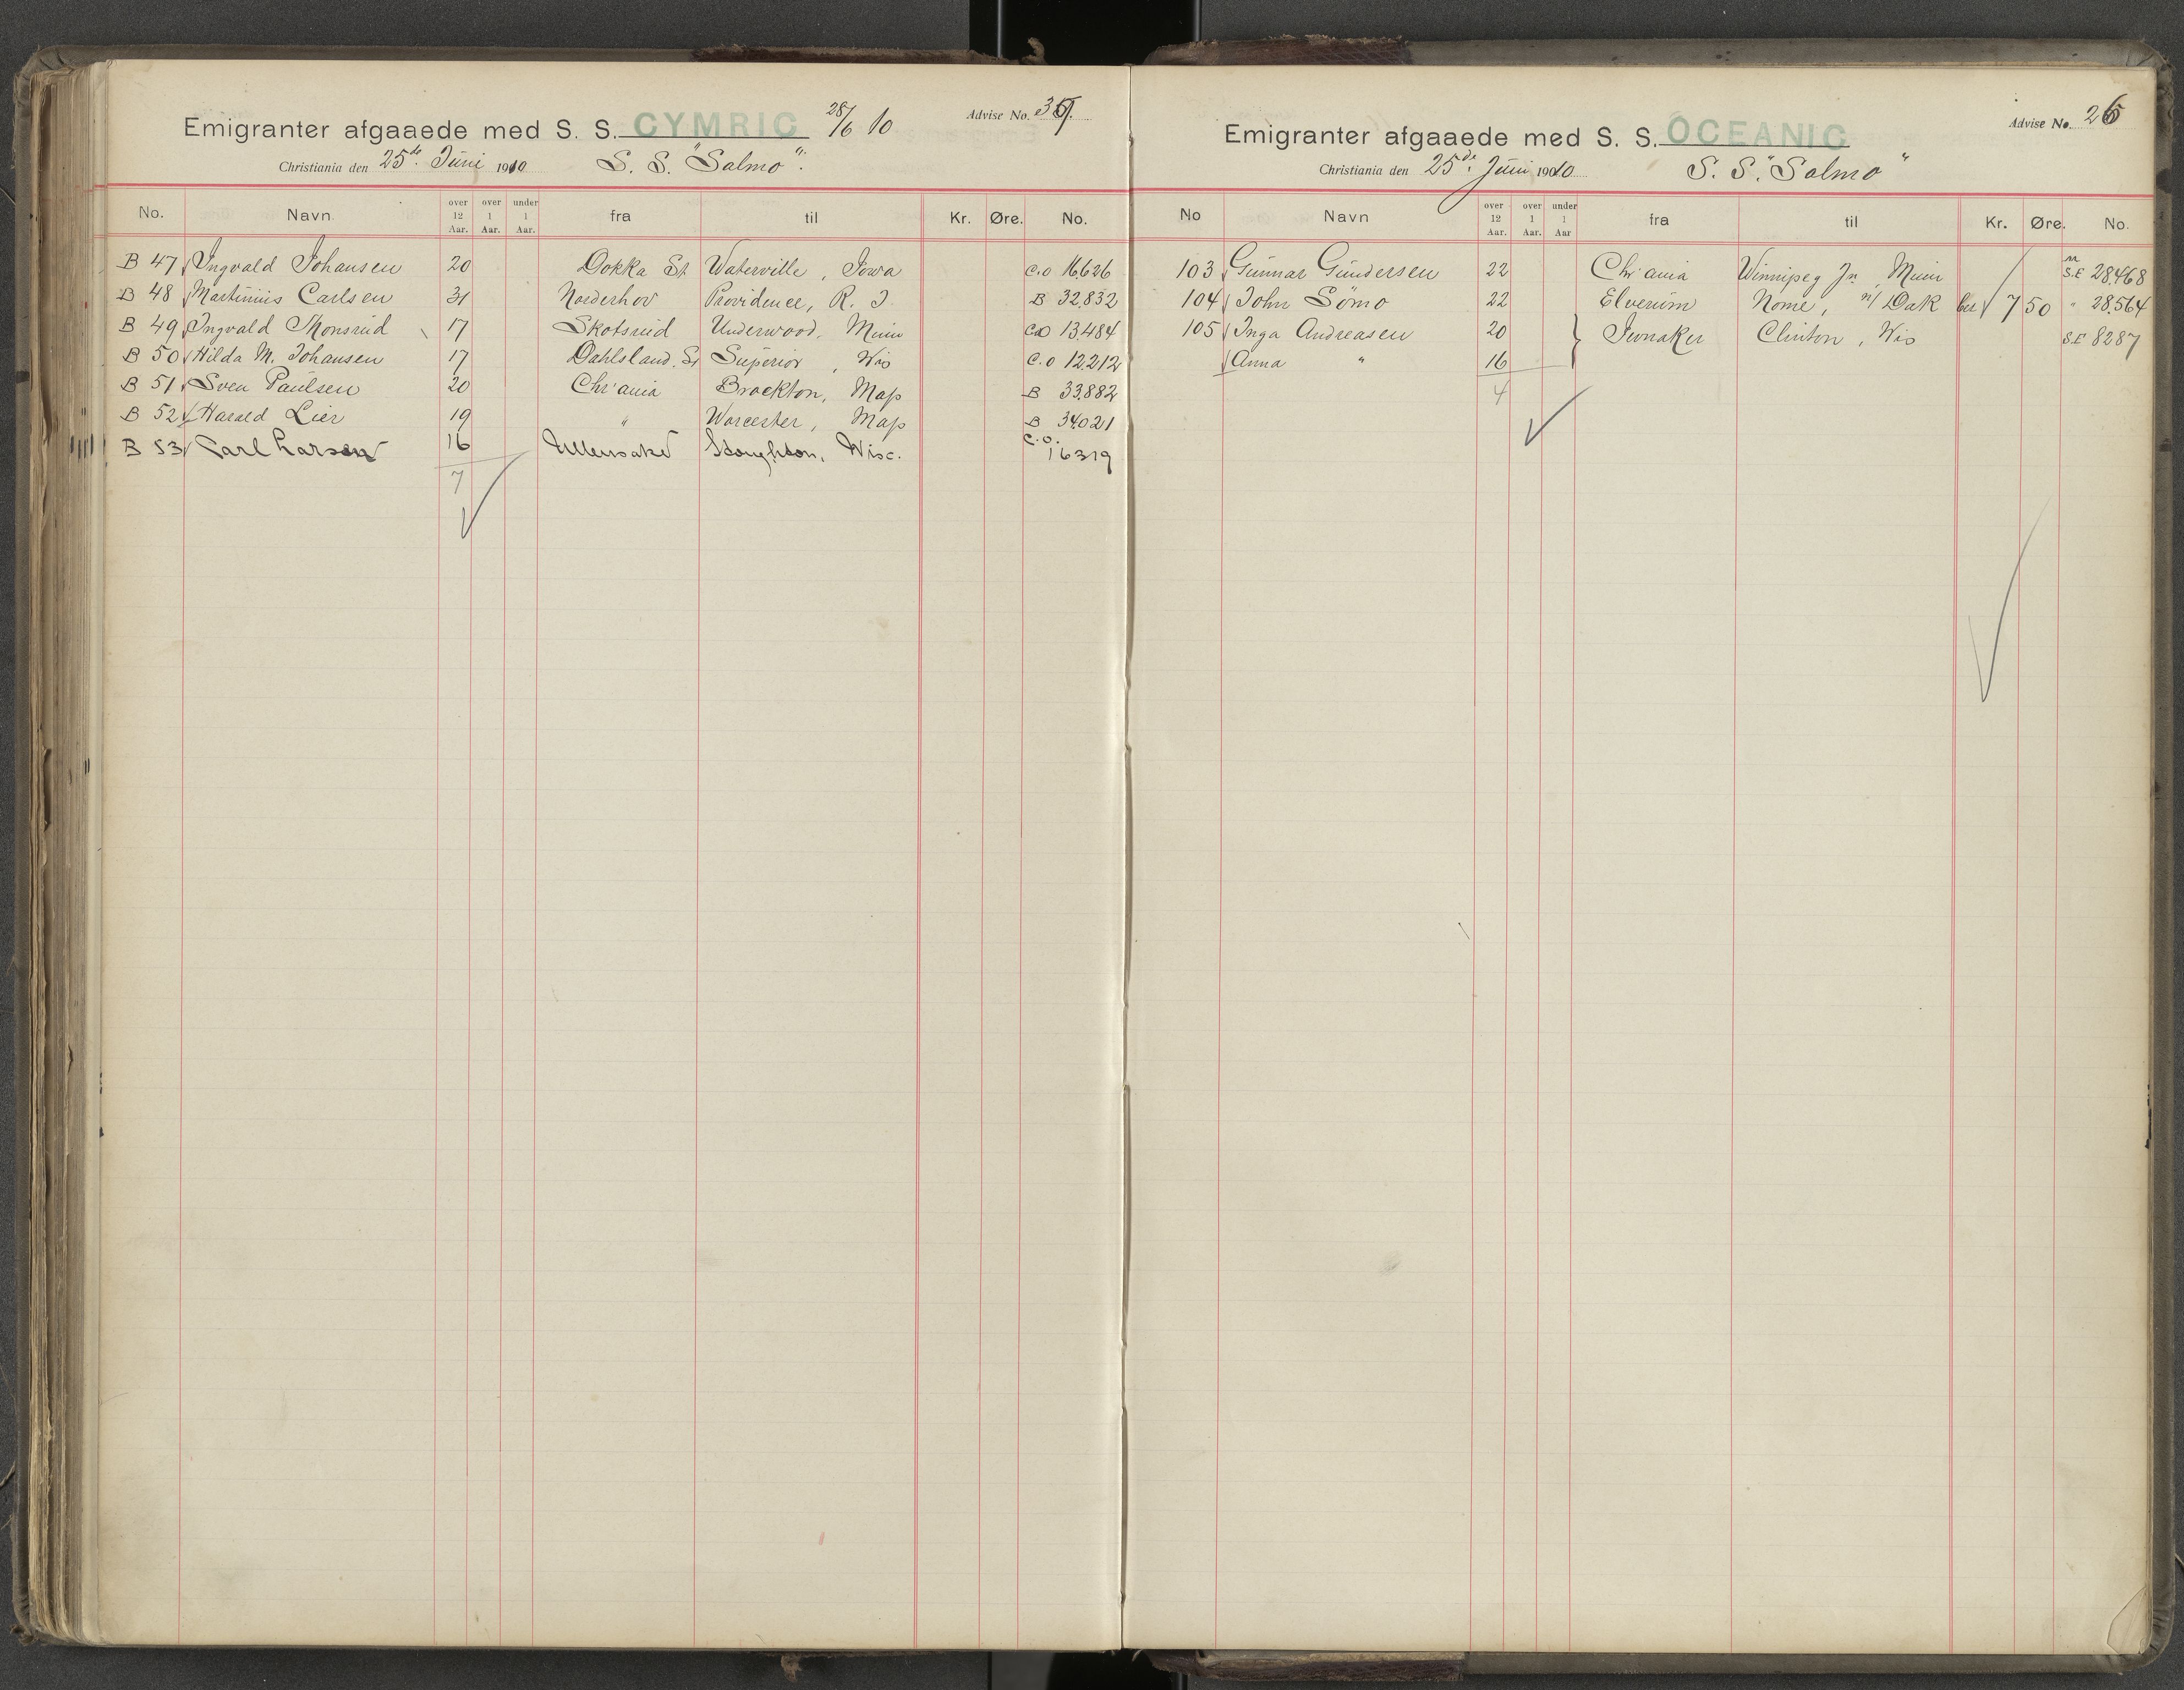 Emigranter afgaaede med S. S. CYMRIC 28/6 10
Advise No.
Christiania den 25de Juni 1910 S. S. "Salmo".
No. Navn over 12 Aar. over 1 Aar. under 1 Aar. fra til Kr. Øre. No.
B 47 Ingvald Johansen 20 Dokka St Waterville, Iowa C.O 16626
B 48 Martinius Carlsen 31 Norderhov Providence, R. I. B 32.832
B 49 Ingvald Monsrud 17 Skotsrud Underwood, Minn C.O 13.484
B 50 Hilda M. Johansen 17 Dahlsland. Superior, Wis C.O 12.212
B 51 Sven Paulsen 20 Chr'ania Brockton, Mass B 33.882
B 52 Harald Lier 19 " Worcester, Mass B 34021
B 53 Carl Larsen 16 Ullensaker Stoughton, Wisc. C.O. 16319
7
Emigranter afgaaede med S. S. OCEANIC
Advise No. 26
Christiania den 25de Juni 1910 S. S. "Salmo"
No Navn over 12 Aar. over 1 Aar. under 1 Aar fra til Kr. Øre. No.
103 Gunnar Gundersen 22 Chr'ania Winnipeg Jn, Minn S.E 28468
104 John Sömo 22 Elverum Nome, N/ Dak 7 50 " 28.564
105 Inga Andreasen 20 Jevnaker Clinton, Wis S.E 8287
Anna " 16
4